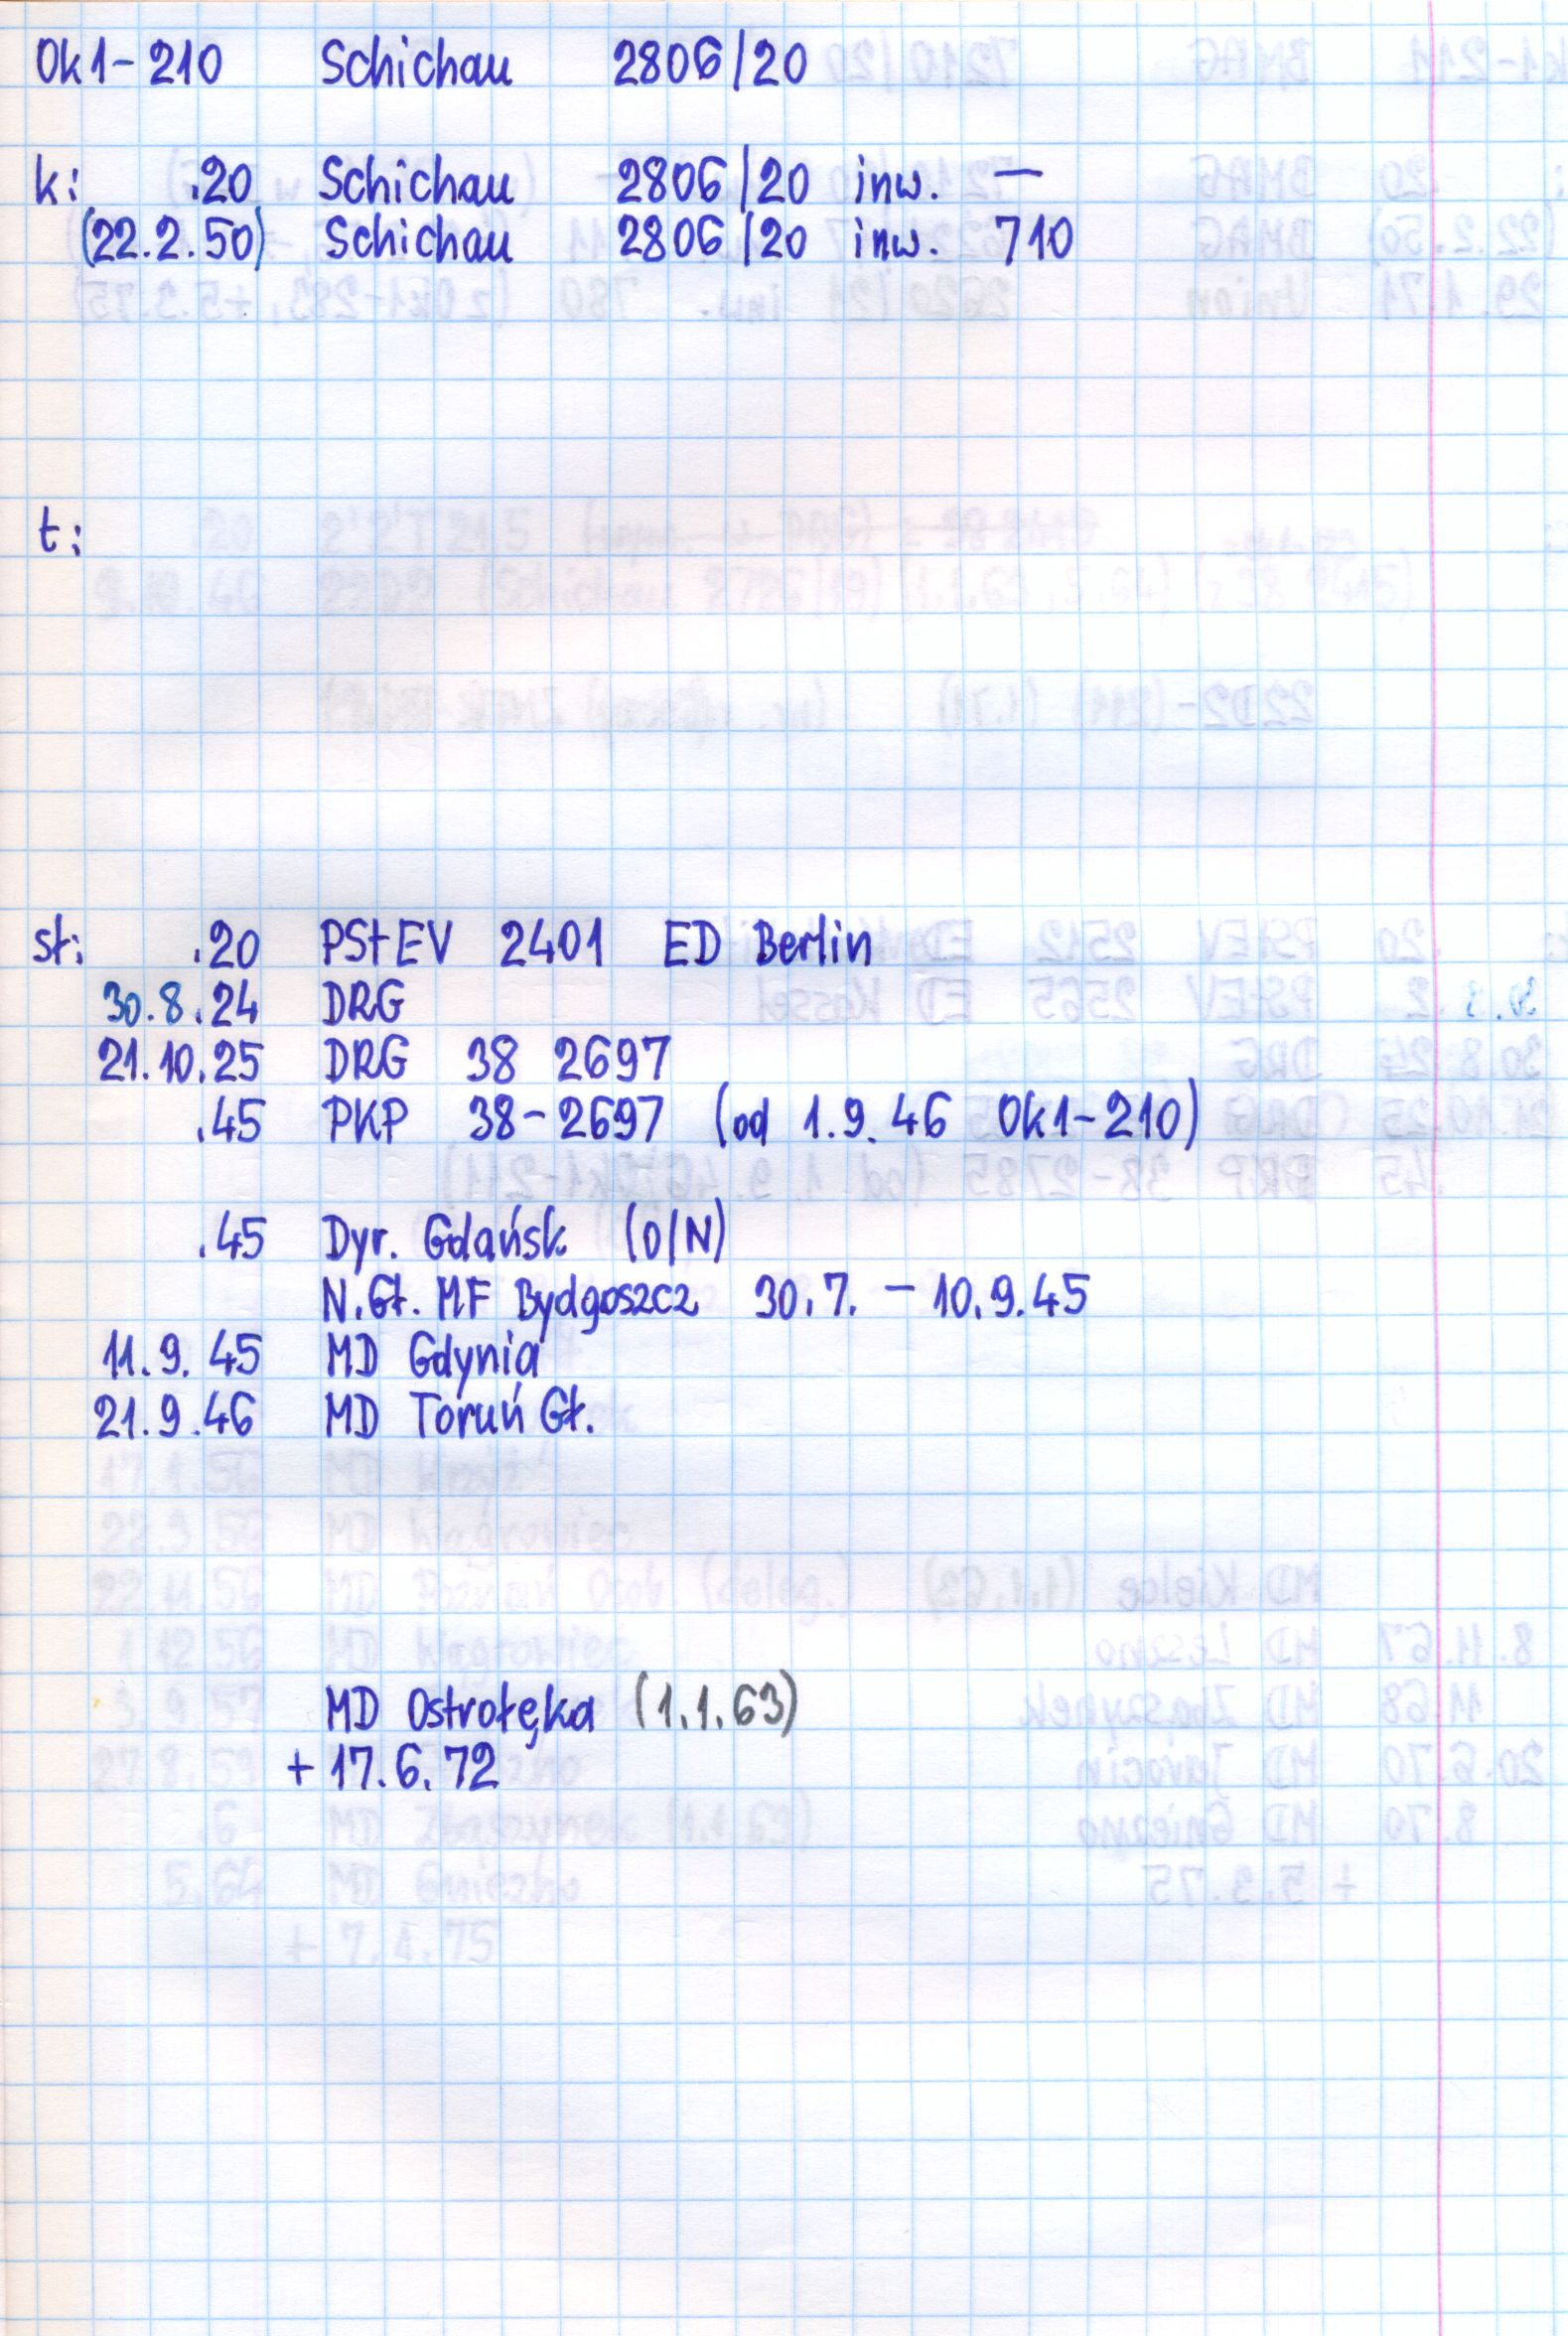 Ok1-210 Schichau 2806/20
k: .20 Schichau 2806/20 inw. —
(22.2.50) Schichau 2806/20 inw. 710
t:
st: .20 PStEV 2401 ED Berlin
30.8.24 DRG
21.10.25 DRG 38 2697
.45 PKP 38-2697 (od 1.9.46 Ok1-210)
.45 Dyr. Gdańsk (O/N)
N.Gł. MF Bydgoszcz 30.7. – 10.9.45
11.9.45 MD Gdynia
21.9.46 MD Toruń Gł.
MD Ostrołęka (1.1.63)
+ 17.6.72